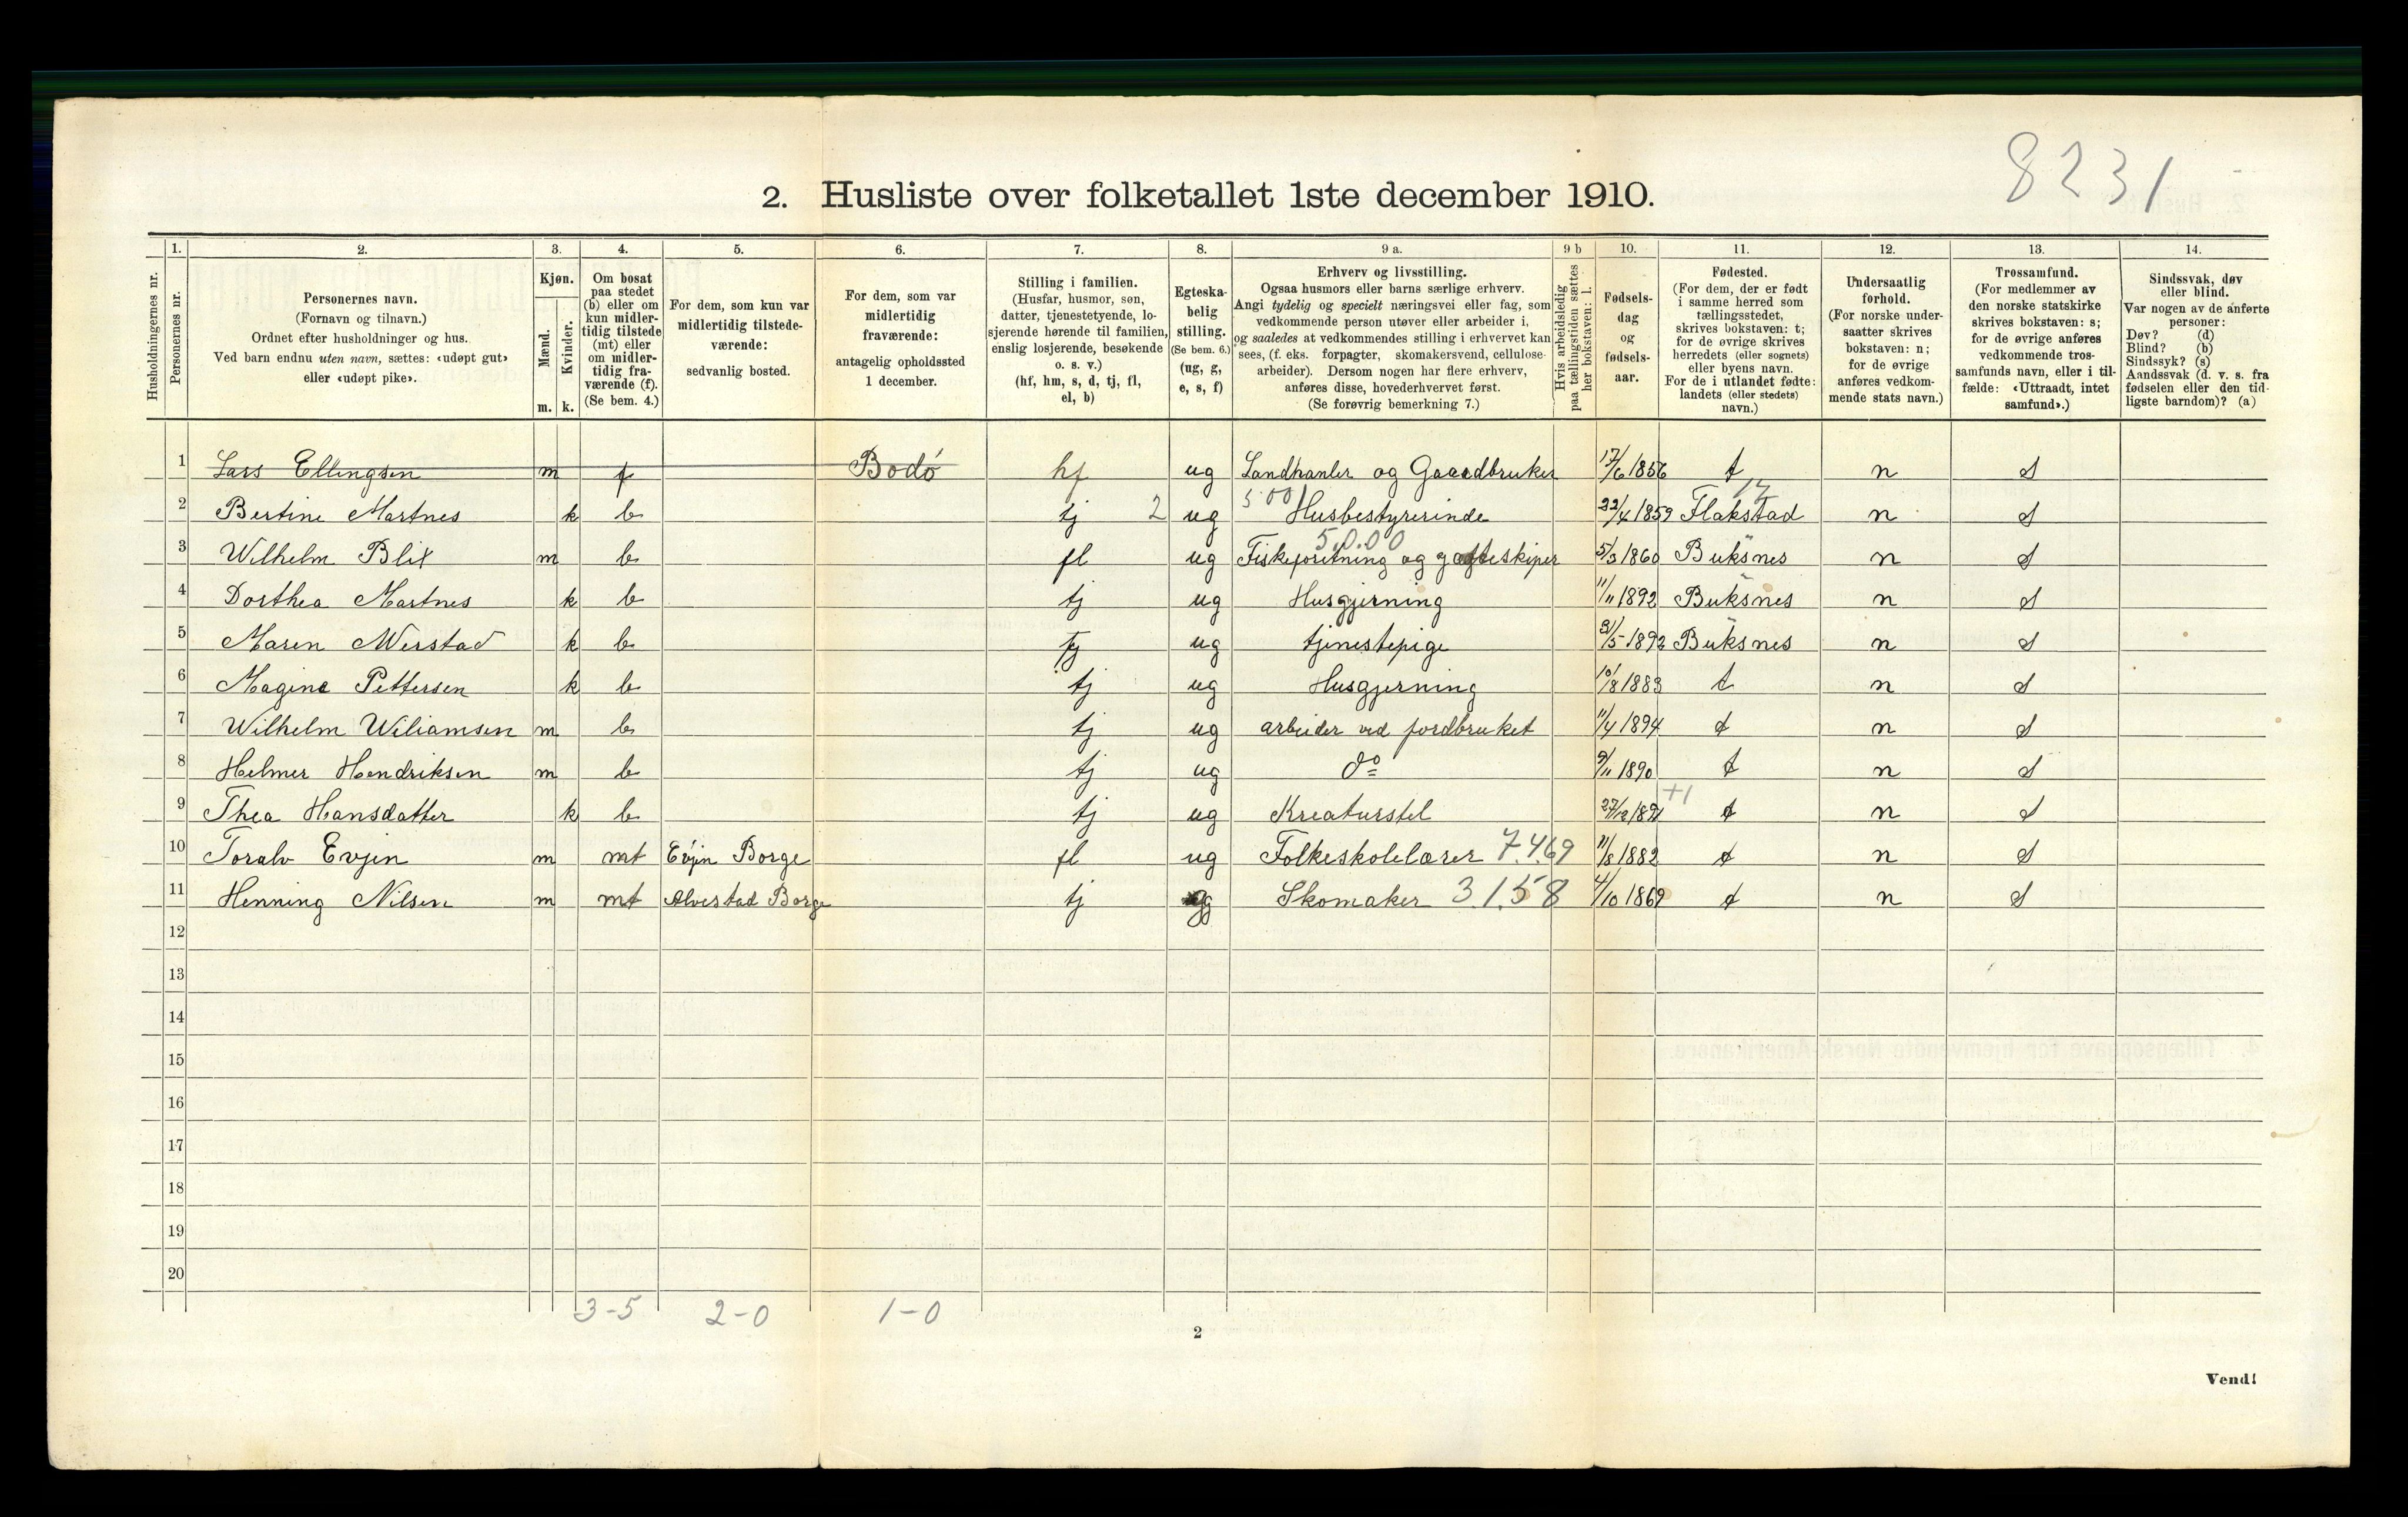 8231
2. Husliste over folketallet 1ste december 1910.
Husholdningernes nr.
1. Personernes nr.
2. Personernes navn.
(Fornavn og tilnavn.)
Ordnet efter husholdninger og hus.
Ved barn endnu uten navn, sættes: «udøpt gut»
eller «udøpt pike».
3. Kjøn.
Mænd. m.
Kvinder. k.
4. Om bosat
paa stedet
(b) eller om
kun midler-
tidig tilstede
(mt) eller
om midler-
tidig fra-
værende (f).
(Se bem. 4.)
5. For dem, som kun var
midlertidig tilstede-
værende:
sedvanlig bosted.
6. For dem, som var
midlertidig
fraværende:
antagelig opholdssted
1 december.
7. Stilling i familien.
(Husfar, husmor, søn,
datter, tjenestetyende, lo-
sjerende hørende til familien,
enslig losjerende, besøkende
o. s. v.)
(hf, hm, s, d, tj, fl,
el, b)
8. Egteska-
belig
stilling.
(Se bem. 6.)
(ug, g,
e, s, f)
9 a. Erhverv og livsstilling.
Ogsaa husmors eller barns særlige erhverv.
Angi tydelig og specielt næringsvei eller fag, som
vedkommende person utøver eller arbeider i,
og saaledes at vedkommendes stilling i erhvervet kan
sees, (f. eks. forpagter, skomakersvend, cellulose-
arbeider). Dersom nogen har flere erhverv,
anføres disse, hovederhvervet først.
(Se forøvrig bemerkning 7.)
9 b Hvis arbeidsledig
paa tællingstiden sættes
her bokstaven: l.
10. Fødsels-
dag
og
fødsels-
aar.
11. Fødested.
(For dem, der er født
i samme herred som
tællingsstedet,
skrives bokstaven: t;
for de øvrige skrives
herredets (eller sognets)
eller byens navn.
For de i utlandet fødte:
landets (eller stedets)
navn.)
12. Undersaatlig
forhold.
(For norske under-
saatter skrives
bokstaven: n;
for de øvrige
anføres vedkom-
mende stats navn.)
13. Trossamfund.
(For medlemmer av
den norske statskirke
skrives bokstaven: s;
for de øvrige anføres
vedkommende tros-
samfunds navn, eller i til-
fælde: «Uttraadt, intet
samfund».)
14. Sindssvak, døv
eller blind.
Var nogen av de anførte
personer:
Døv? (d)
Blind? (b)
Sindssyk? (s)
Aandssvak (d. v. s. fra
fødselen eller den tid-
ligste barndom)? (a)
1 Lars Ellingsen m f Bodó hf ug Landhanler og Gaardbruker 17/6 1856 t n S
2 Bertine Martnes k b tj 2 ug 500 Husbestyrerinde 22/4 1859 Flakstad 17 n S
3 Wilhelm Blix m b fl ug Fiskeforetning og 5.0.00 5/3 1860 Buksnes n S
4 Dorthea Martnes k b tj ug Husgjerning 11/11 1892 Buksnes n S
5 Maren Werstad k b tj ug tjenestepige 1892 Buksnes n S
6 Magine Pettersen k b tj ug Husgjerning 10/8 1883 t n S
7 Wilhelm Wiliamsen m b tj ug arbeider ved jordbruket 11/4 1894 t n S
8 Helmer Hendriksen m b tj ug do 9/11 1890 t n S
9 Thea Hansdatter k b tj ug Kreaturstel 27/12 +1 t n S
10 Toralv Evjen m mt Evjen Borge fl ug Folkeskolelærer 7.4.69 11/8 1882 t n S
11 Henning Nilsen m mt Alvestad Borge tj Skomaker 3.1.58 4/10 1869 t n S
12
13
14
15
16
17
18
19
20
3-5 2-0 1-0
2
Vend!